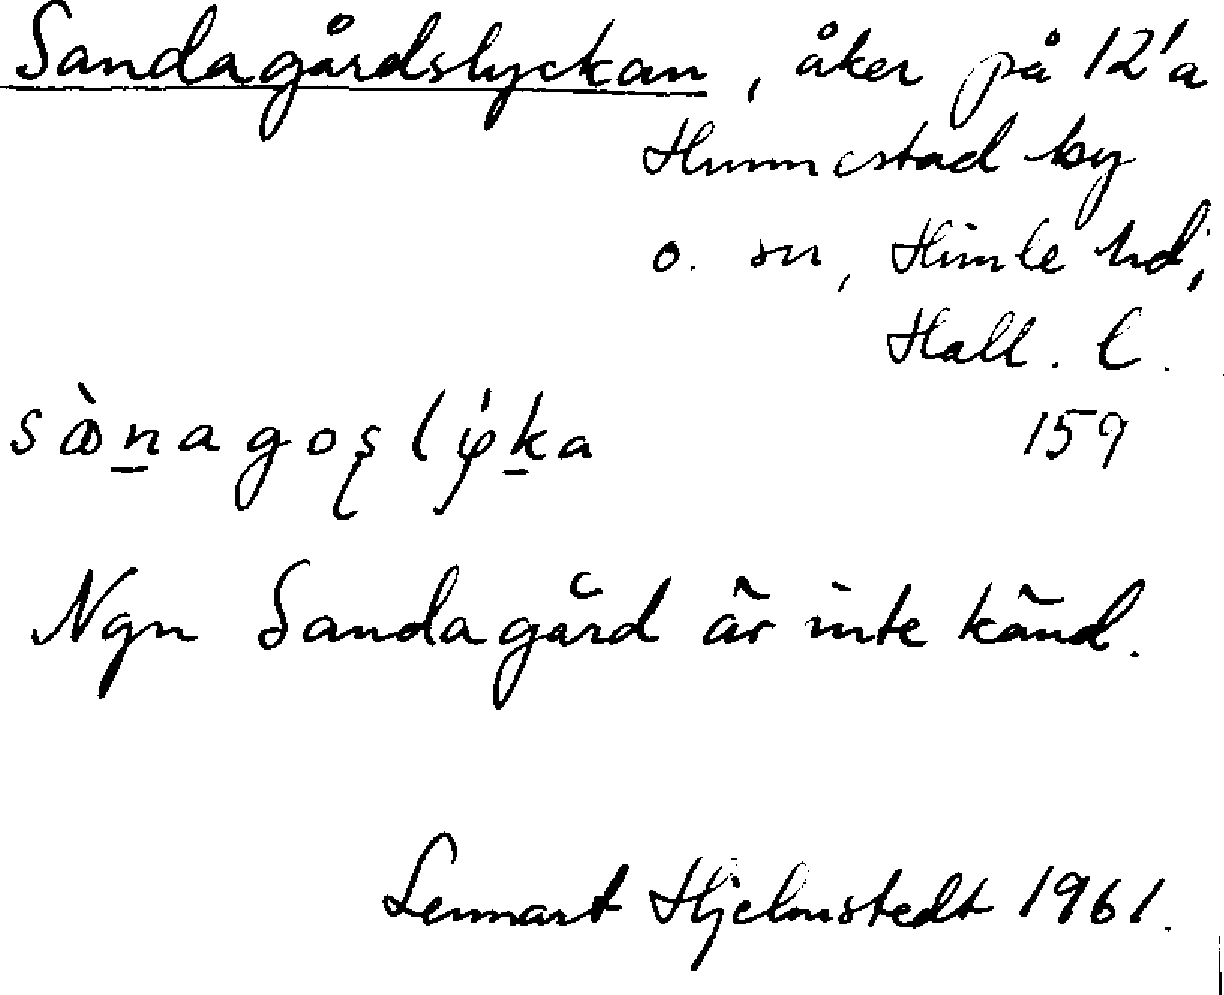 Sandagårdslyckan, åker på 12'a
Hunnestad by
o. sn, Himle hd,
Hall. l.
sàn̲agoşlýk̲a 159
Ngn Sandagård är inte känd.
Lennart Hjelmstedt 1961.